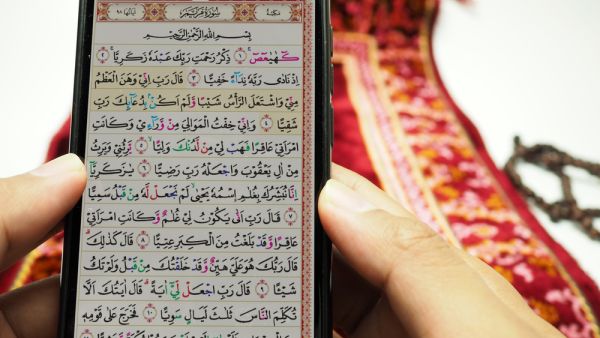 مكية
سورة مريم
اياتها ٩٨
بِسْمِ اللّٰهِ الرَّحْمٰنِ الرَّحِيْمِ
كٓهٰيٰعٓصٓ ۚ ١ ذِكْرُ رَحْمَتِ رَبِّكَ عَبْدَهٗ زَكَرِيَّا ۚ ٢
اِذْ نَادٰى رَبَّهٗ نِدَاۤءً خَفِيًّا ٣ قَالَ رَبِّ اِنِّيْ وَهَنَ الْعَظْمُ
مِنِّيْ وَاشْتَعَلَ الرَّأْسُ شَيْبًا وَّلَمْ اَكُنْ ۢ بِدُعَاۤىِٕكَ رَبِّ
شَقِيًّا ٤ وَاِنِّيْ خِفْتُ الْمَوَالِيَ مِنْ وَّرَاۤءِيْ وَكَانَتِ
امْرَاَتِيْ عَاقِرًا فَهَبْ لِيْ مِنْ لَّدُنْكَ وَلِيًّا ۙ ٥ يَّرِثُنِيْ وَيَرِثُ
مِنْ اٰلِ يَعْقُوْبَ وَاجْعَلْهُ رَبِّ رَضِيًّا ٦ يٰزَكَرِيَّآ
اِنَّا نُبَشِّرُكَ بِغُلٰمِ ِۨاسْمُهٗ يَحْيٰىۙ لَمْ نَجْعَلْ لَّهٗ مِنْ قَبْلُ سَمِيًّا
٧ قَالَ رَبِّ اَنّٰى يَكُوْنُ لِيْ غُلٰمٌ وَّكَانَتِ امْرَاَتِيْ
عَاقِرًا وَّقَدْ بَلَغْتُ مِنَ الْكِبَرِ عِتِيًّا ٨ قَالَ كَذٰلِكَۚ
قَالَ رَبُّكَ هُوَ عَلَيَّ هَيِّنٌ وَّقَدْ خَلَقْتُكَ مِنْ قَبْلُ وَلَمْ تَكُ
شَيْـًٔا ٩ قَالَ رَبِّ اجْعَلْ لِّيْٓ اٰيَةً ۗ قَالَ اٰيَتُكَ اَلَّا
تُكَلِّمَ النَّاسَ ثَلٰثَ لَيَالٍ سَوِيًّا ١٠ فَخَرَجَ عَلٰى قَوْمِهٖ